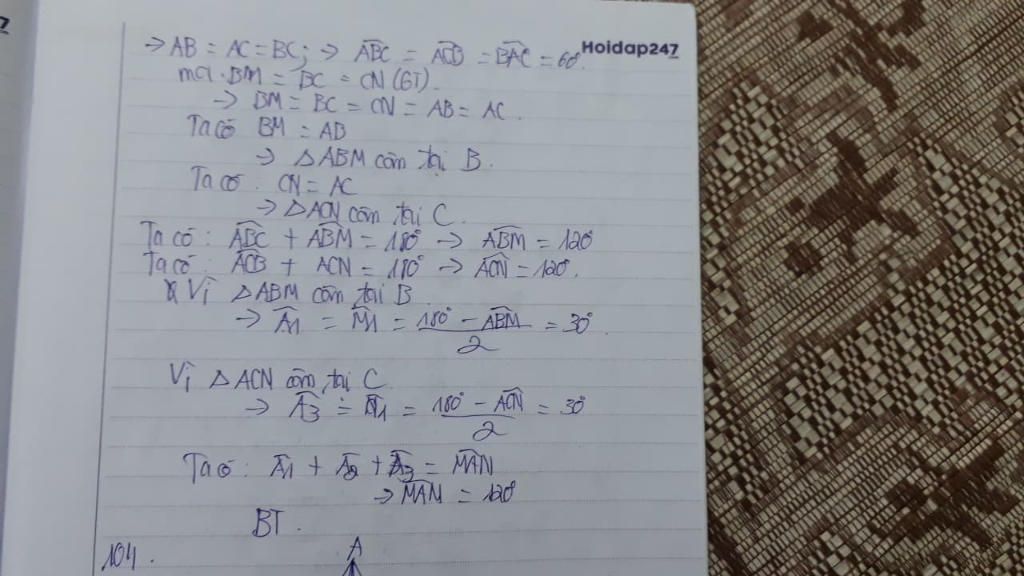 → AB = AC = BC; → ABC = ACB = BAC = 60°.
Hoidap247
mà BM = BC = CN (GT).
→ BM = BC = CN = AB = AC.
Ta có BM = AB
→ △ABM cân tại B.
Ta có: CN = AC
→ △ACN cân tại C.
Ta có: ABC + ABM = 180° → ABM = 120°
Ta có: ACB + ACN = 180° → ACN = 120°.
Vì △ABM cân tại B.
→ A1 = M1 = 180° - ABM / 2 = 30°.
Vì △ACN cân tại C.
→ A3 = N1 = 180° - ACN / 2 = 30°
Ta có: A1 + A2 + A3 = MAN
→ MAN = 120°
BT.
104.
A